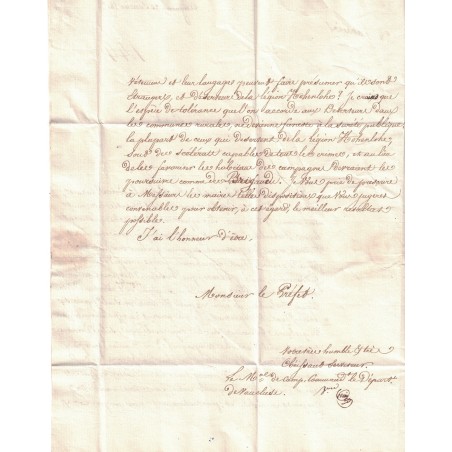 vêtemens et leur langages peuvent faire présumer qu'ils sont
Etrangers, et Déserteurs de la légion Hohenlohe? Je crains que
l'espèce de tolérance que l'on accorde aux Déserteurs Dans
les communes rurales ne devienne funeste à la société publique
la plupart de ceux que desertent de la légion Hohenlohe
sont des scelérats capables de tous les crimes et au lieu
de les favoriser les habitans de campagne Devraient les
poursuivre comme des Brigands; Je Vous prie de prescrire
à Messieurs les maires telles disposition que Vous jugerez
convenables pour obtenir, à cet égard, le meilleur résultat
possible.
J'ai l'honneur d'être,
Monsieur le Préfet.
Votre très humble & très
Obéissant Serviteur
Le M.al de Camp Command.t le Départ.t
de Vaucluse.